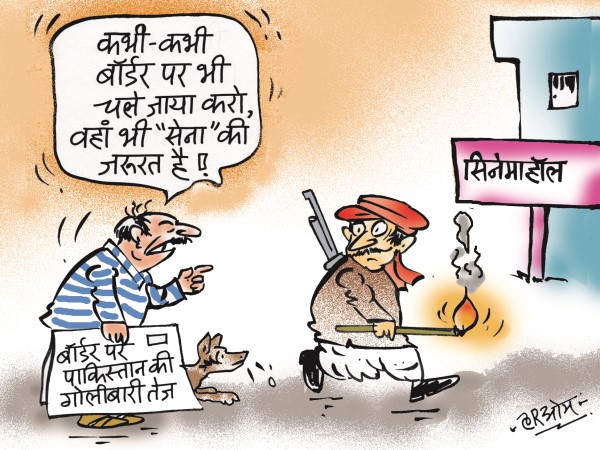 कभी-कभी
बॉर्डर पर भी
चले जाया करो,
वहां भी "सेना" की
जरूरत है!
सिनेमाहॉल
बॉर्डर पर
पाकिस्तान की
गोलीबारी तेज